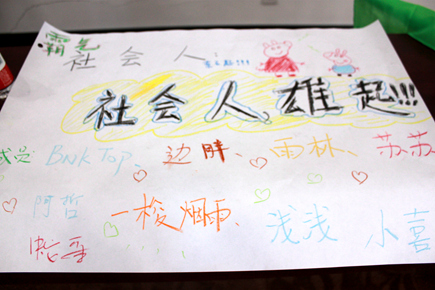 霸气 社会人!
社会人雄起!!!
成员 BNK Top、边胖、雨林、苏苏
阿哲 一梭烟雨、浅浅 小喜